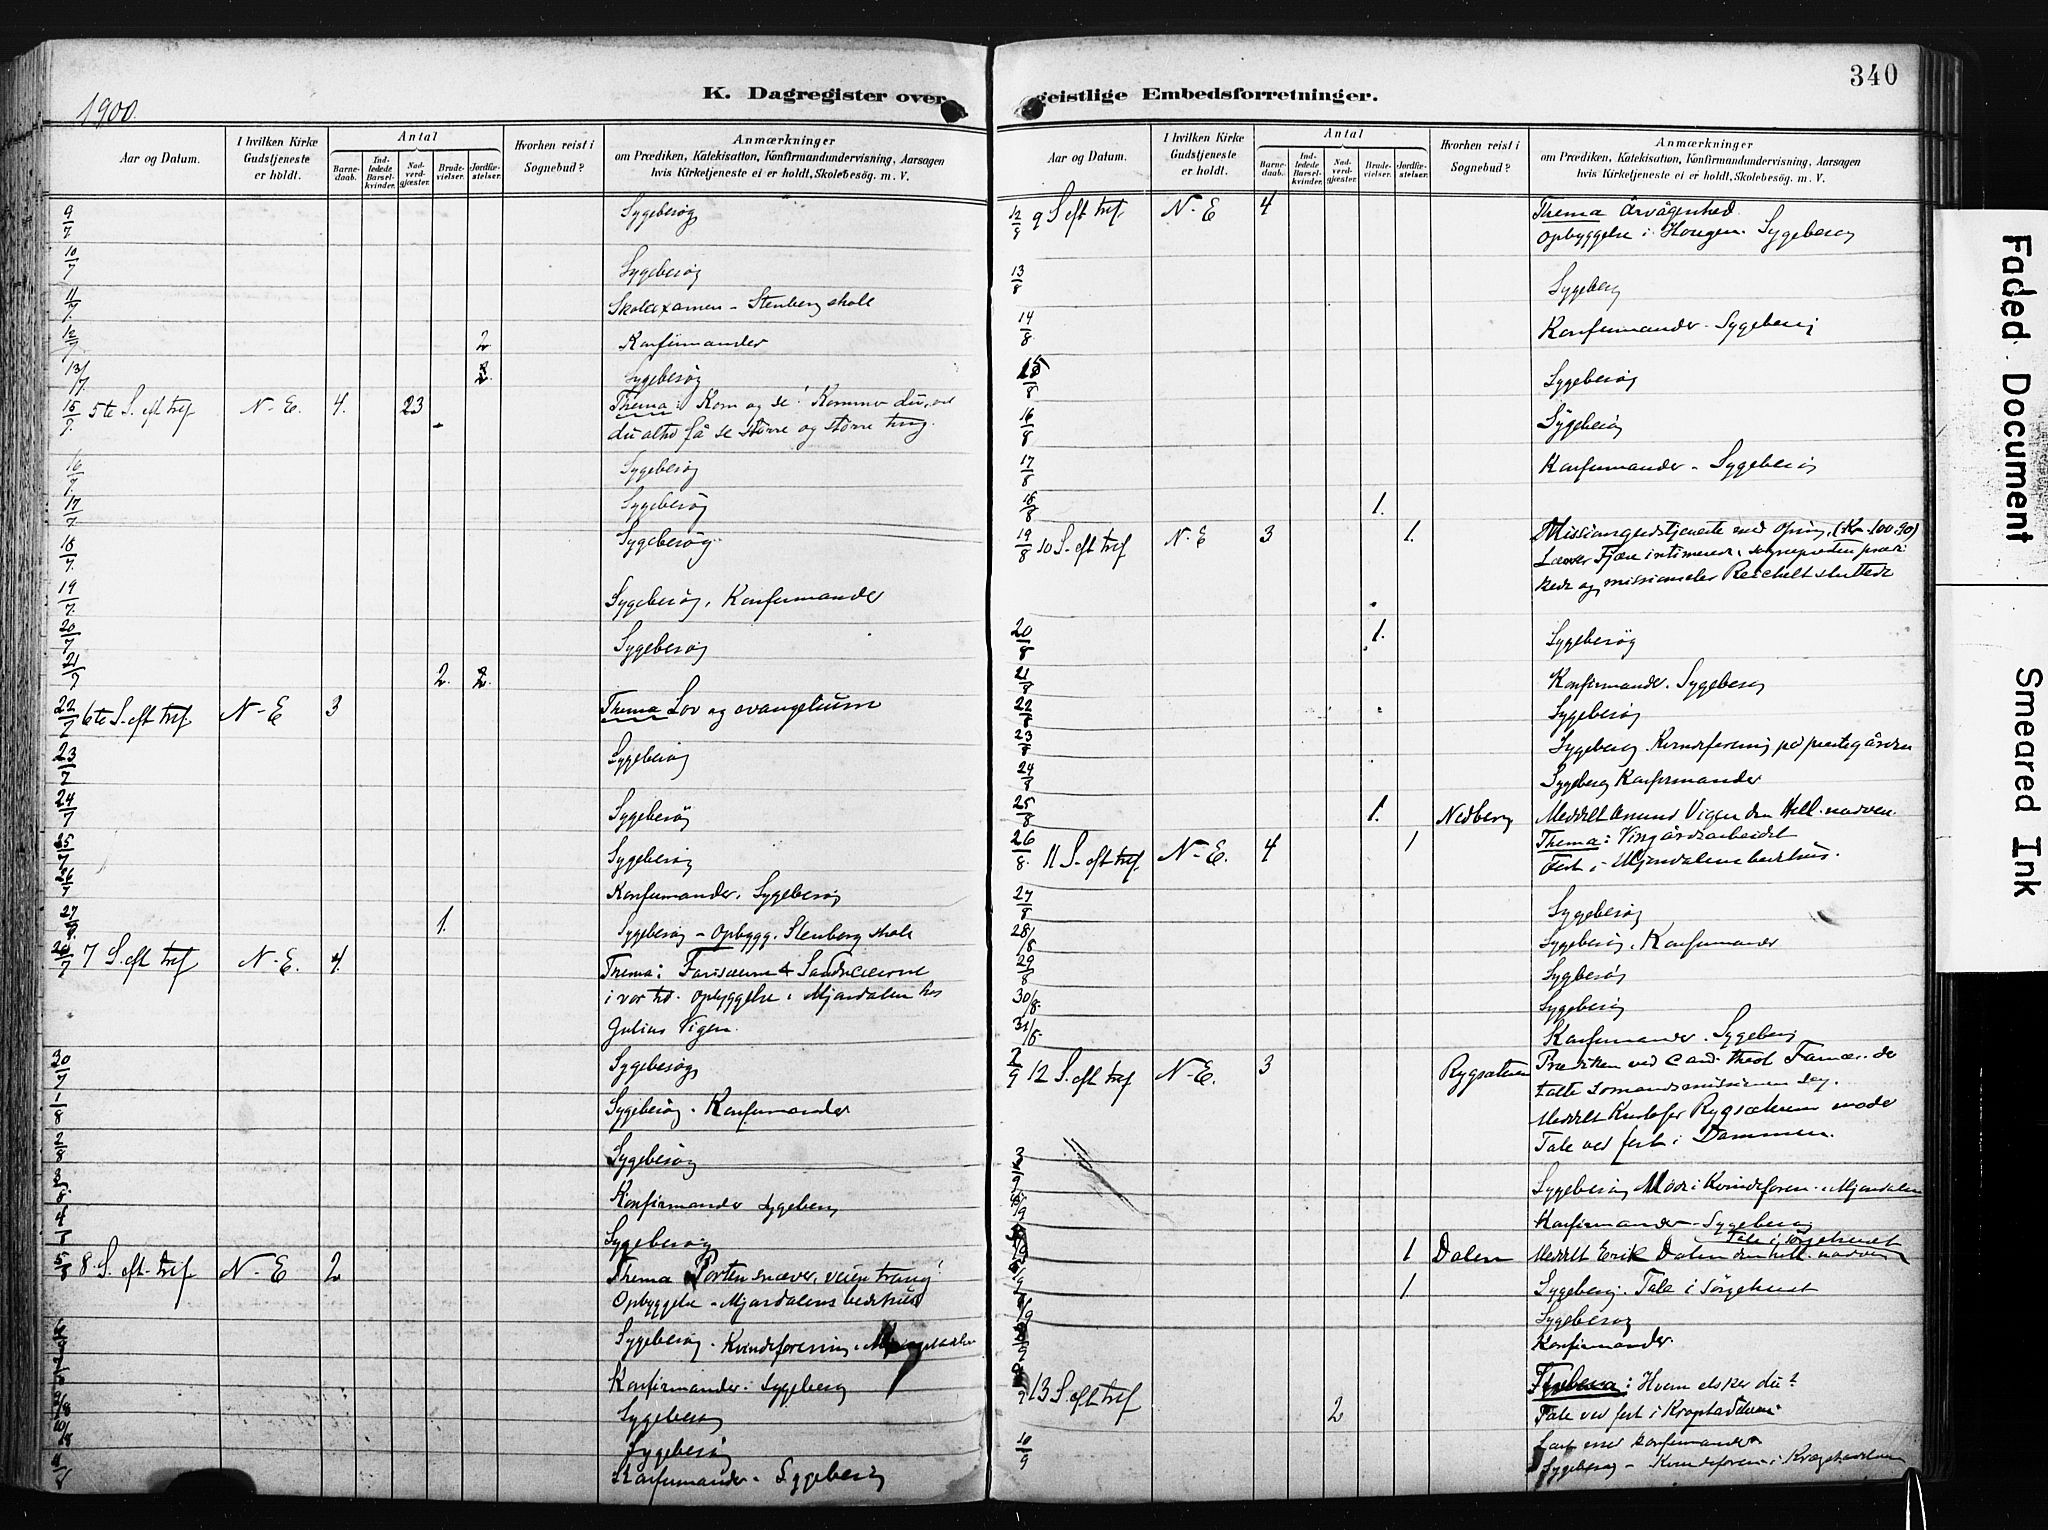 340
1900.
K. Dagregister over geistlige Embedsforretninger.
Aar og Datum.
I hvilken Kirke Gudstjeneste er holdt.
Antal
Barnedaab.
Indledede Barselkvinder.
Nadverdgjester.
Brudevielser.
Jordfæstelser.
Hvorhen reist i Sognebud?
Anmærkninger
om Prædiken, Katekisation, Konfirmandundervisning, Aarsagen
hvis Kirketjeneste ei er holdt, Skolebesøg. m. V.
9/7 Sygebesøg
10/7 Sygebesøg
11/7 Skolexamen - Stenberg skole
12/7 2 Konfirmander
13/7 2 Sygebesøg
15/7 5te S. eft tref N-E. 4. 23 Thema: Kom og se! Kommer du, vil
du altid få se større og større ting.
16/7 Sygebesøg
17/7 Sygebesøg
18/7 Sygebesøg.
19/7 Sygebesøg, Konfirmander
20/7 Sygebesøg
21/7 2. 2.
22/7 6te S. eft tref N-E 3 Thema Lov og evangelium
23/7 Sygebesøg
24/7 Sygebesøg
25/7 Sygebesøg
26/7 Konfirmander. Sygebesøg
27/7 1. Sygebesøg - Opbygg. Stenberg skole
7 S. eft tref N-E. 4. Thema: Farisæerne & Sadducæerne
i vor tid. Opbyggelse i Mjøndalen hos
Julius Vigen.
30/7 Sygebesøg
1/8 Sygebesøg. Konfirmander
2/8 Sygebesøg
3/8 Konfirmander Sygebesøg
4/8 Sygebesøg
5/8 8. S. eft. tref N-E 2 Thema Porten snæver, veien trang!
Opbyggelse - Mjøndalens bedehus
Sygebesøg. Kvindeforening i
Konfirmander. Sygebesøg
9/8 Sygebesøg
10/8 Sygebesøg
Konfirmander. Sygebesøg
Aar og Datum.
I hvilken Kirke Gudstjeneste er holdt.
Antal
Barnedaab.
Indledede Barselkvinder.
Nadverdgjester.
Brudevielser.
Jordfæstelser.
Hvorhen reist i Sognebud?
Anmærkninger
om Prædiken, Katekisation, Konfirmandundervisning, Aarsagen
hvis Kirketjeneste ei er holdt, Skolebesøg. m. V.
12/8 9 S eft tref N-E 4 Thema Årvågenhed.
Opbyggelse i Haugen. Sygebesøg
13/8 Sygebesøg
14/8 Konfirmander. Sygebesøg
15/8 Sygebesøg
16/8 Sygebesøg
17/8 Konfirmander - Sygebesøg
18/8 1.
19/8 10 S. eft tref N-E 3 1. Missionsgudstjeneste med ofring. (Kr. 100.90)
Lærer Fjære intimerede, sognepresten præ-
kede og missionselev Reichelt sluttede
20/8 1. Sygebesøg
21/8 Konfirmander. Sygebesøg
22/8 Sygebesøg
23/8 Sygebesøg Kvindeforening på prestegården
24/8 Sygebesøg Konfirmander
25/8 1. Nedberg Meddelt Amund Vigen den Hell. nadver.
26/8 11 S. eft tref. N-E. 4 1 Thema: Vingårdsarbeidet
Fest i Mjøndalens bedehus.
27/8 Sygebesøg
28/8 Sygebesøg. Konfirmander
29/8 Sygebesøg
30/8. Sygebesøg
31/8. Konfirmander. Sygebesøg
2/9 12 S. eft tref N-E. 3 Rygsæteren Prædiken ved Cand. theol der
talte Sømandsmissionens Sag.
Meddelt Kristofer Rygsæteren nadv.
Tale ved fest i Dammen.
3/9 Sygebesøg Møde i Kvindeforen. i Mjøndalen
Konfirmander. Sygebesøg
Tale i sørgehuset
1 Dalen Meddelt Erik Dalen den hell. nadver
1 Sygebesøg. Tale i Sørgehuset
Sygebesøg
Konfirmander.
9/9 13 S. eft tref Thema: Hvem elsker du?
2 Tale ved fest i
10/9 Læst med konfirmander
Sygebesøg - Kvindeforen. i
Faded Document
Smeared Ink